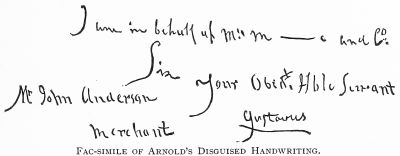 I am in behalf of Mr. M —— e and Co.
Sir
Your Obedt. Hble Servant
Mr John Anderson
Gustavus
Merchant
FAC-SIMILE OF ARNOLD'S DISGUISED HANDWRITING.